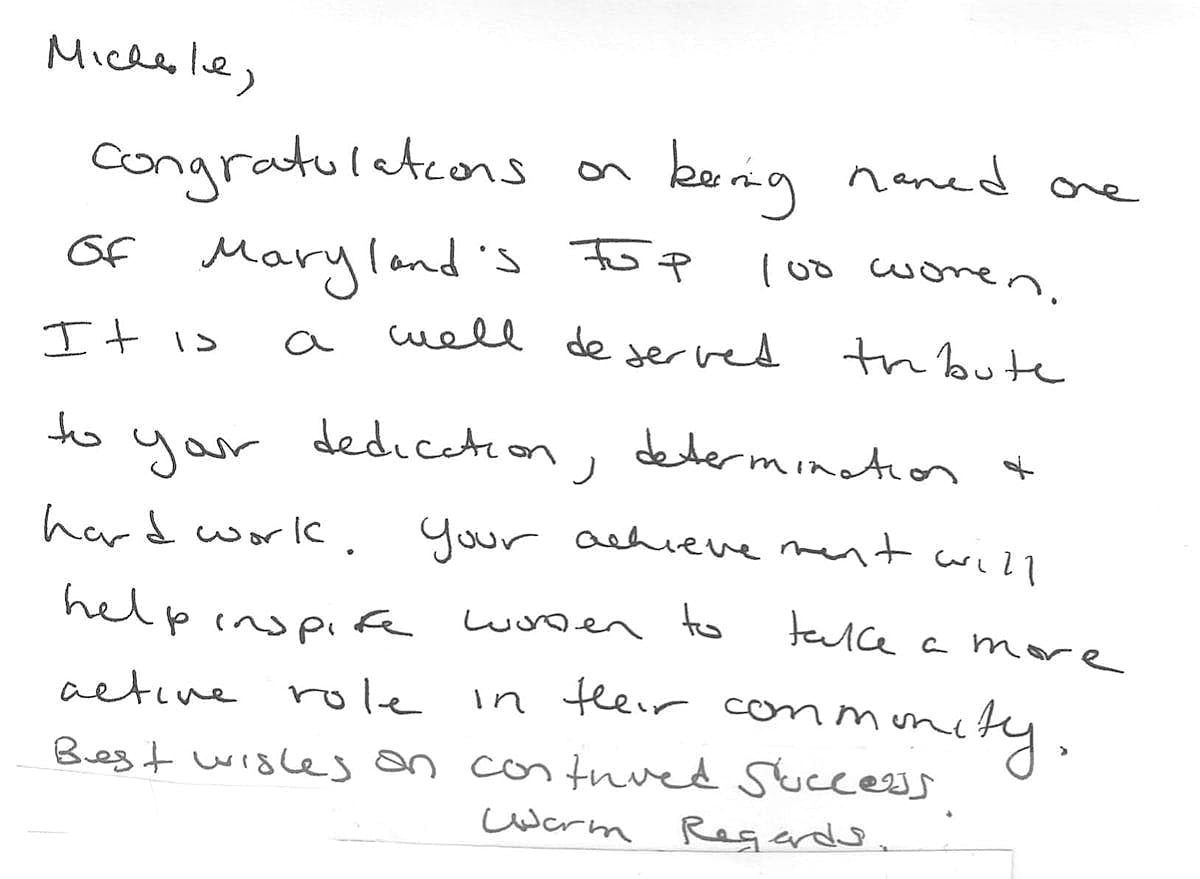 Michele,
Congratulations on being named one
of Maryland's Top 100 women.
It is a well deserved tribute
to your dedication, determination &
hard work. Your achievement will
help inspire women to take a more
active role in their community.
Best wishes on continued success.
Warm Regards.